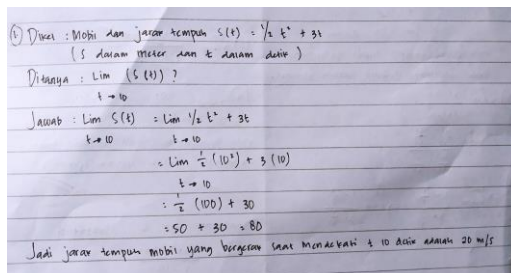 ② Diket : Mobil dan jarak tempuh S(t) = 1/2 t² + 3t
(S dalam meter dan t dalam detik)
Ditanya : Lim (S(t)) ?
t → 10
Jawab : Lim S(t) = Lim 1/2 t² + 3t
t → 10 t → 10
= Lim 1/2 (10²) + 3 (10)
t → 10
= 1/2 (100) + 30
= 50 + 30 = 80
Jadi jarak tempuh mobil yang bergerak saat mendekati t 10 detik adalah 20 m/s